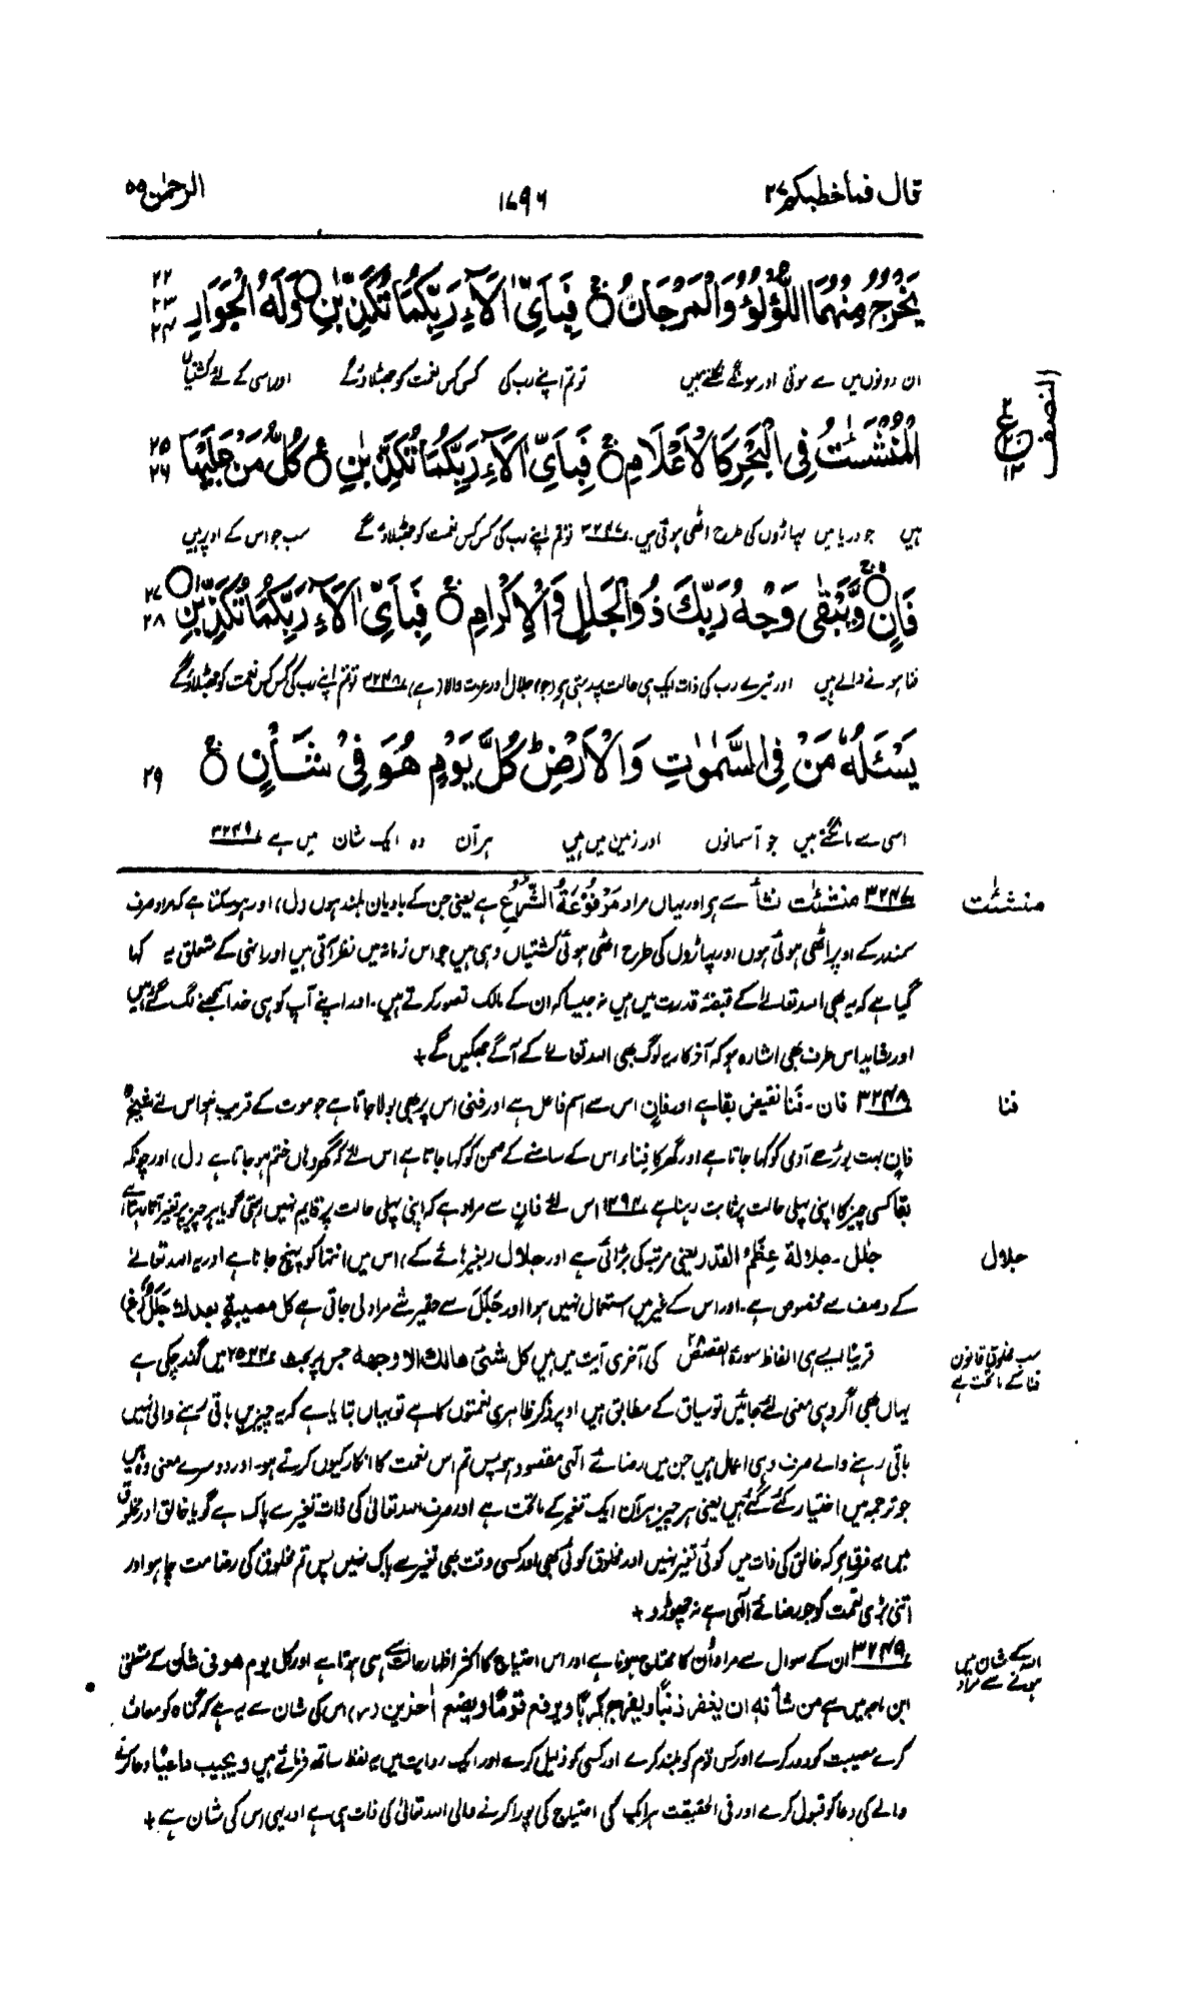 قال فما خطبکم ۲۷
۱۷۹۶
الرحمٰن ۵۵
يَخْرُجُ مِنْهُمَا اللُّؤْلُؤُ وَالْمَرْجَانُ ۚ فَبِاَيِّ اٰلَآءِ رَبِّكُمَا تُكَذِّبٰنِ وَلَهُ الْجَوَارِ ۲۲ ۲۳ ۲۴
ان دونوں میں سے موتی اور مونگے نکلتے ہیں تو تم اپنے رب کی کس کس نعمت کو جھٹلاؤ گے اور اسی کے لئے کشتیاں
الْمُنْشَئٰتُ فِي الْبَحْرِ كَالْاَعْلَامِ ۚ فَبِاَيِّ اٰلَآءِ رَبِّكُمَا تُكَذِّبٰنِ ۚ كُلُّ مَنْ عَلَيْهَا ۲۵ ۲۶
النصف
ع ۱۲
ہیں جو دریا میں پہاڑوں کی طرح اٹھی ہوئی ہیں۔ ۳۲۴۷ تو تم اپنے رب کی کس کس نعمت کو جھٹلاؤ گے سب جو اس کے اوپر ہیں
فَانٍ وَّيَبْقٰى وَجْهُ رَبِّكَ ذُو الْجَلٰلِ وَالْاِكْرَامِ ۚ فَبِاَيِّ اٰلَآءِ رَبِّكُمَا تُكَذِّبٰنِ ۲۷ ۲۸
فنا ہونے والے ہیں اور تیرے رب کی ذات ایک ہی حالت پر رہتی ہو (جو) جلال اور عزت والا (ہے) ۳۲۴۸ تو تم اپنے رب کی کس کس نعمت کو جھٹلاؤ گے
يَسْئَلُهٗ مَنْ فِي السَّمٰوٰتِ وَالْاَرْضِ ؕ كُلَّ يَوْمٍ هُوَ فِيْ شَاْنٍ ۚ ۲۹
اسی سے مانگتے ہیں جو آسمانوں اور زمین میں ہیں ہر آن وہ ایک شان میں ہے ۳۲۴۹
منشئٰت
۳۲۴۷ منشئٰت نشأ سے ہو اور یہاں مراد مَرْفُوْعَةُ الشِّرَاعِ ہے یعنی جن کے بادبان بلند ہوں (ل) اور ہوسکتا ہے کہ مراد صرف
سمندر کے اوپر اٹھی ہوئی ہوں اور پہاڑوں کی طرح اٹھی ہوئی کشتیاں وہی ہیں جو اس زمانہ میں نظر آتی ہیں اور انہی کے متعلق یہ کہا
گیا ہے کہ یہ بھی اللہ تعالےٰ کے قبضۂ قدرت میں ہیں نہ جیسا کہ ان کے مالک تصور کرتے ہیں۔ اور اپنے آپ کو ہی خدا سمجھنے لگ گئے ہیں
اور شاید اس طرف بھی اشارہ ہو کہ آخر کار یہ لوگ بھی اللہ تعالےٰ کے آگے جھکیں گے +
فنا
۳۲۴۸ فان۔ فَنا نقیض بقا ہے اور فانٍ اس سے اسم فاعل ہے اور فَنٰی اس پر بھی بولا جاتا ہے جو موت کے قریب ہو اس لئے شیخ
فانٍ بہت بوڑھے آدمی کو کہا جاتا ہے اور گھر کا فِناء اس کے سامنے کے صحن کو کہا جاتا ہے اس لئے کہ گھر وہاں ختم ہو جاتا ہے (ل) اور چونکہ
بقا کسی چیز کا اپنی پہلی حالت پر ثابت رہنا ہے ۱۳۹۳ اس لئے فانٍ سے مراد ہے کہ اپنی پہلی حالت پر قایم نہیں رہتی گویا ہر چیز پر تغیر آتا رہتا ہے
جلال
جلٰل۔ جلالة عِظَمُ القدر یعنی مرتبہ کی بڑائی ہے اور جلال (بغیر ہائے کے) اس میں انتہا کو پہنچ جانا ہے اور یہ اللہ تعالےٰ
کے وصف سے مخصوص ہے۔ اور اس کے غیر میں استعمال نہیں ہوا اور جَلَل سے حقیر شے مراد لی جاتی ہے کل مصیبةٍ بعدك جَلَلٌ (غ)
سب مخلوق قانون
فنا کے ماتحت ہے
قریباً ایسے ہی الفاظ سورۂ القصص ۲۸ کی آخری آیت میں ہیں کل شئ ھالك الا وجھه جس پر بحث ۲۵۲۲ میں گذر چکی ہے
یہاں بھی اگر وہی معنی لئے جائیں تو سیاق کے مطابق ہیں اوپر ذکر ظاہری نعمتوں کا ہے تو یہاں بتایا ہے کہ یہ چیزیں باقی رہنے والی نہیں
باقی رہنے والے صرف وہی اعمال ہیں جن میں رضائے الٰہی مقصود ہو پس تم اس نعمت کا انکار کیوں کرتے ہو۔ اور دوسرے معنی وہ ہیں
جو ترجمہ میں اختیار کئے گئے ہیں یعنی ہر چیز ہر آن ایک تغیر کے ماتحت ہے اور صرف اللہ تعالیٰ کی ذات تغیر سے پاک ہے گویا خالق اور مخلوق
میں یہ فرق ہو کہ خالق کی ذات میں کوئی تغیر نہیں اور مخلوق کوئی بھی اور کسی وقت بھی تغیر سے پاک نہیں پس تم مخلوق کی رضا مت چاہو اور
اتنی بڑی نعمت کو جو رضائے الٰہی ہے نہ چھوڑو +
اللہ کے شان میں
ہونے سے مراد
۳۲۴۹ ان کے سوال سے مراد اُن کا محتاج ہونا ہے اور اس احتیاج کا اکثر اظہار حالت سے ہی ہوتا ہے اور کل یوم ھو فی شأن کے متعلق
ابن ماجہ میں ہے من شأنه ان یغفر ذنباً ویفرج کرباً ویرفع قوماً ویضع اٰخرین (ر) اس کی شان سے یہ ہے کہ گناہ کو معاف
کرے مصیبت کو دور کرے اور کسی قوم کو بلند کرے اور کسی کو ذلیل کرے اور ایک روایت میں یہ لفظ ساتھ فرماتے ہیں ویجیب داعیاً دعا کرنے
والے کی دعا کو قبول کرے اور فی الحقیقت ہر ایک کی احتیاج کی پورا کرنے والی اللہ تعالیٰ کی ذات ہی ہے اور یہی اس کی شان ہے +